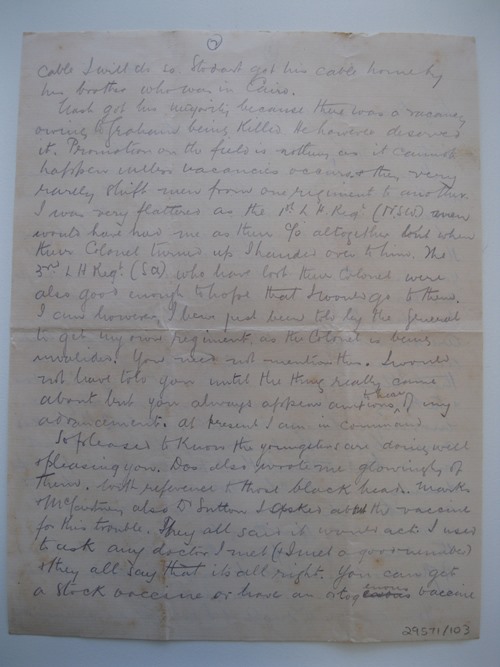 2
cable I will do so. Stodart got his cable home by
his brother who was in Cairo.
got his majority because there was a vacancy
owing to Graham being killed. He however deserved
it. Promotion on the field is nothing as it cannot
happen unless vacancies occur & they very
rarely shift men from one regiment to another.
I was very flattered as the 1st L H Regt (NSW) men
would have had me as their C/o altogether but when
their Colonel turned up I handed over to him. The
3rd L H Regt (SA) who have lost their Colonel were
also good enough to hope that I would go to them.
I am however I have just been told by the General
to get my own regiment, as the Colonel is being
invalided. You need not mention this. I would
not have told you until the thing really came
about but you always appear anxious to hear of my
advancement. At present I am in command
So pleased to know the youngsters are doing well
& pleasing you. Das also wrote me glowingly of
them. With reference to those black heads. Marks
& McCartney also Dr Sutton I asked about the vaccine
for this trouble. They all said it would act. I used
to ask any doctor I met (& I met a good number
& they all say that its all right. You can get
a stock vaccine or have an autogenous vaccine
29571/103